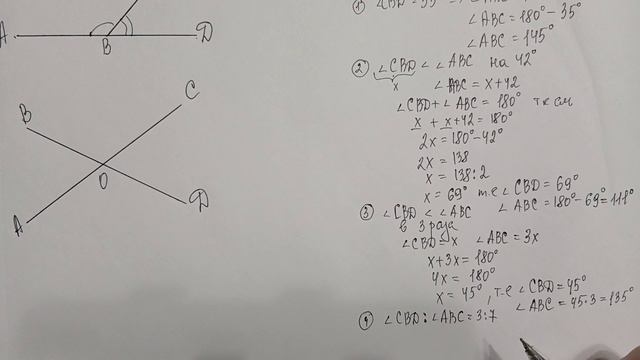 1) ∠CBD = 35°
∠ABC = 180° - 35°
∠ABC = 145°
A B D
2) ∠CBD < ∠ABC на 42°
x ∠ABC = x + 42
∠CBD + ∠ABC = 180° т.к см
x + x + 42 = 180°
2x = 180° - 42°
2x = 138
x = 138 : 2
x = 69° т.е ∠CBD = 69°
∠ABC = 180° - 69° = 111°
B C
O
A D
3) ∠CBD < ∠ABC
в 3 раза
∠CBD = x ∠ABC = 3x
x + 3x = 180°
4x = 180°
x = 45°, т-е ∠CBD = 45°
∠ABC = 45·3 = 135°
4) ∠CBD : ∠ABC = 3:7